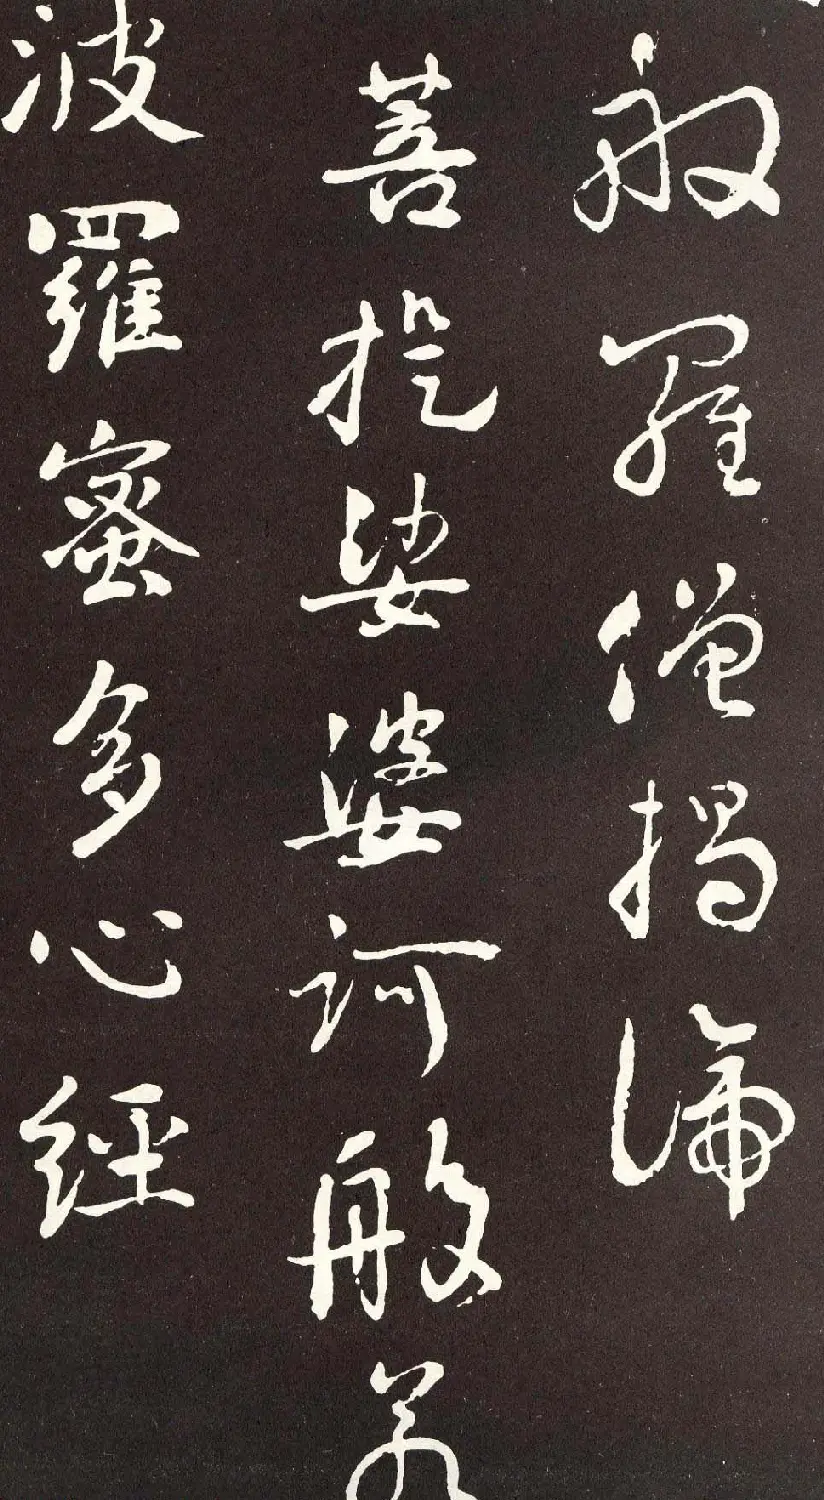 般羅僧揭諦
菩提娑婆訶般若
波羅蜜多心經